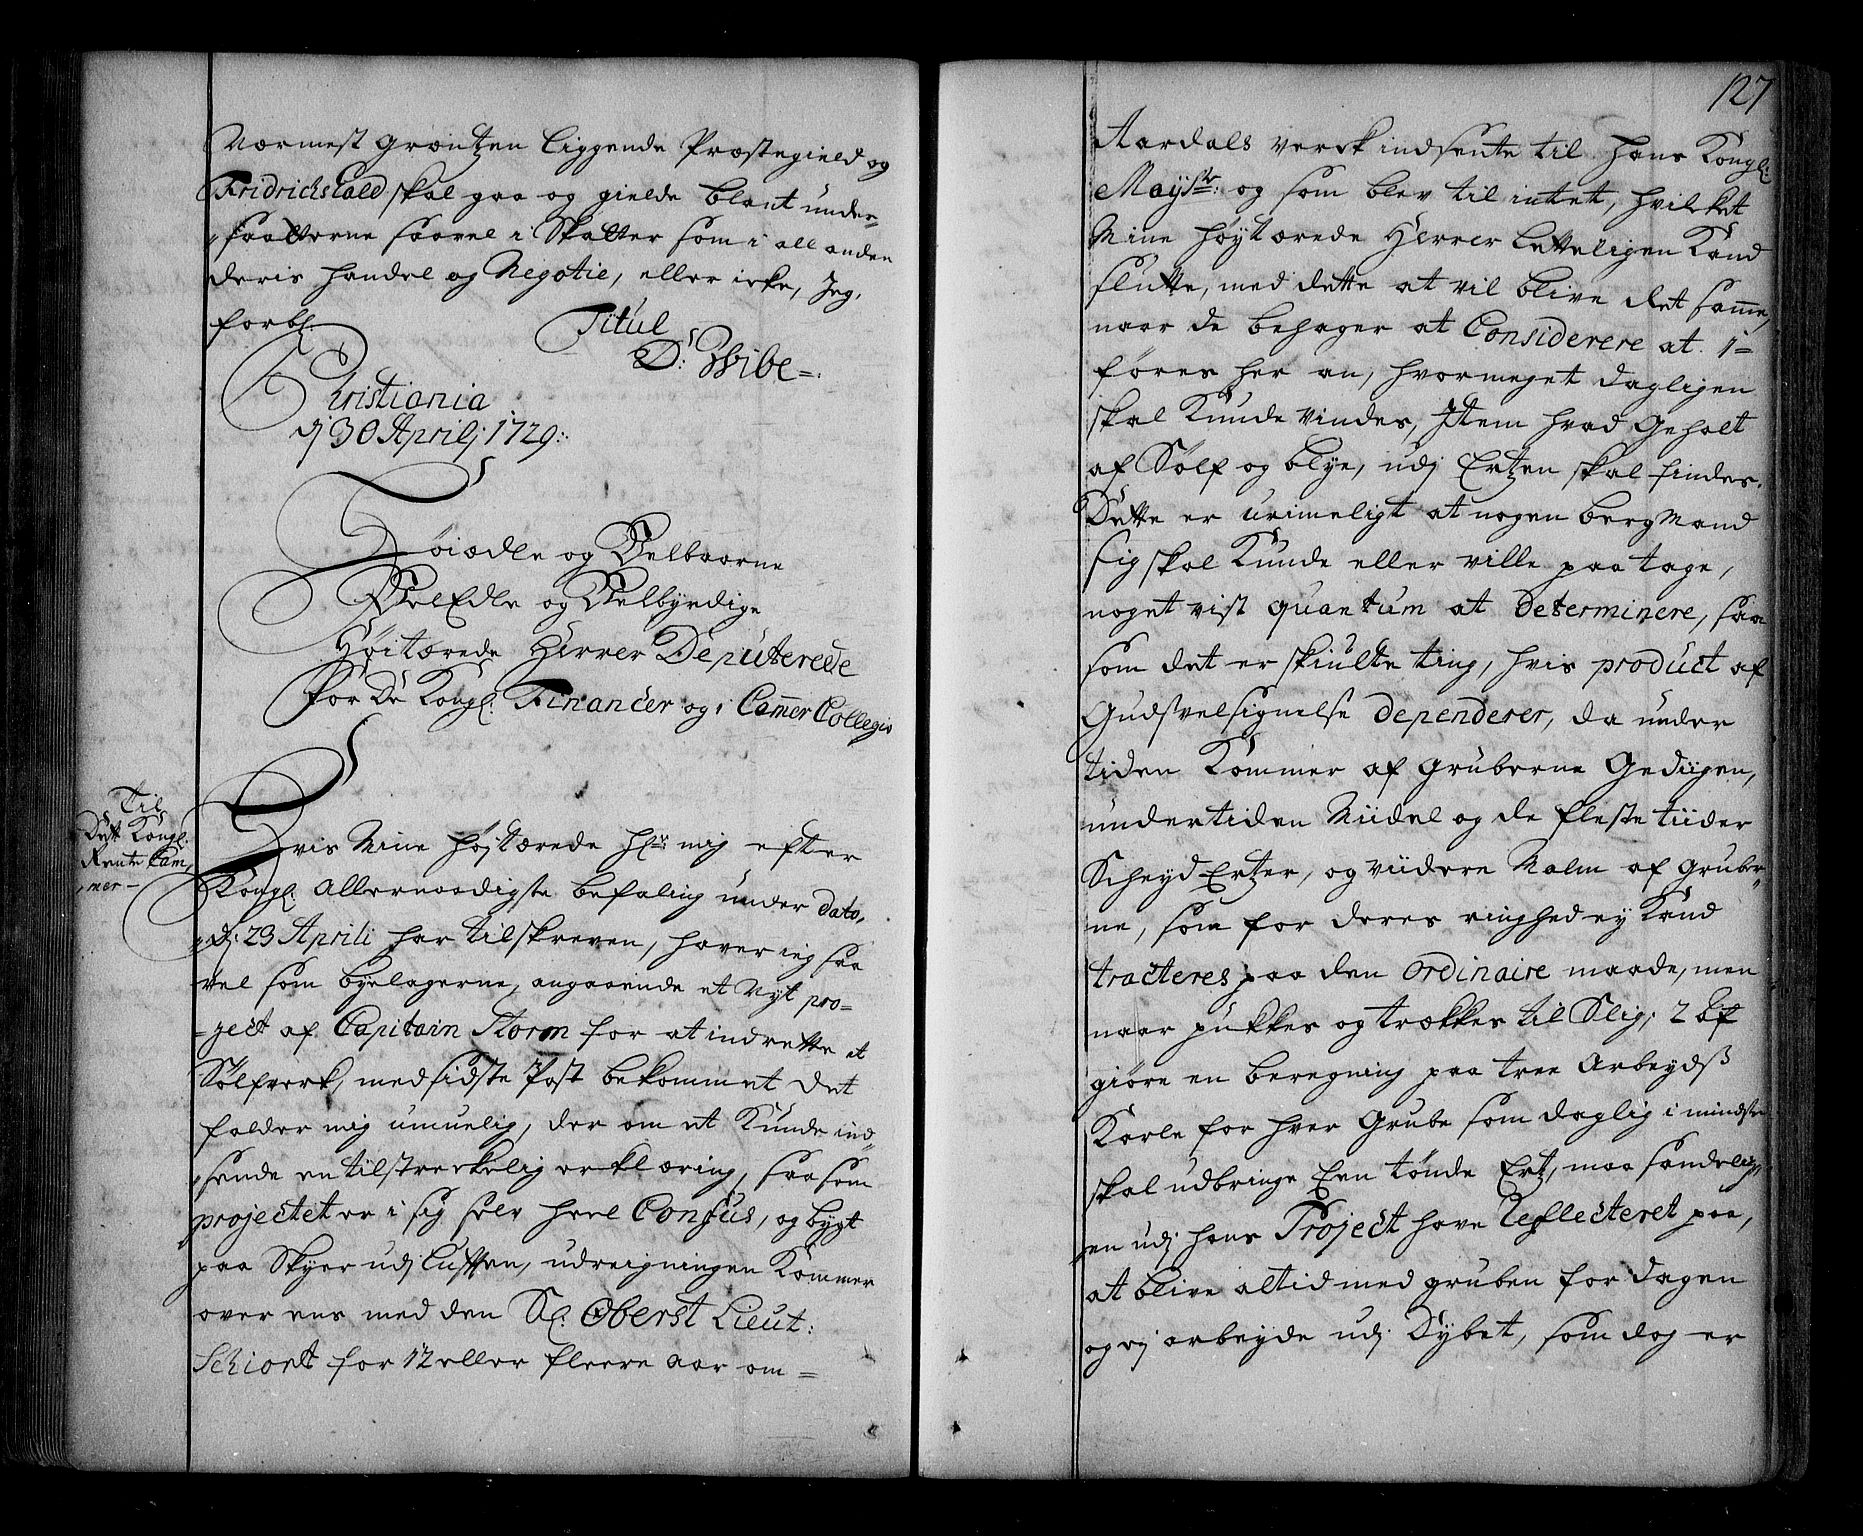 Nærmest Græntzen liggende Præstegield og
Fridrichshald skal gaa og gielde blant under-
saatterne saavel i Skatter som i all anden
deris handel og Negotie, eller icke, Jeg,
forbl:
Titul
D: Wibe
Christiania
dj 30 Aprilj 1729.
Høiædle og Velbaarne
VelEdle og Velbyrdige
Høitærede Herrer Deputerede
for De Kongl: Financer og i Camer Collegio
Til
Dett Kongl:
Rente Cam
mer
Hvis Mine højtærede Hr: mig efter
Kongl: Allernaadigste befaling under dato,
d: 23 Aprili har tilskreven, haver ieg saa
vel som byelagerne, angaaende et Nyt pro-
ject af Capitain Storm for at indrette et
Sølfverk, med sidste Post bekommet det
falder mig umuelig, der om at Kunde ind-
sende en tilstrekkelig erklæring, saasom
projectet er i sig selv heel Confus, og bygt
paa Skyer udj luften, udreigningen Kommer
over ens med den Sl: Oberst Lieut:
Schiort for 12 eller fleere aar om
127
Aardals verck indsente til hans Kongl:
Mayst: og som blev til intet, hvilket
Mine høytærede Herrer letteligen Kand
slutte, med dette at vil blive det same,
naar de behager at Considerere at 1=
føres her an, hvormeget dagligen
skal Kunde vindes, Item hvad Gehalt
af Sølf og blye, udj Ertzen skal findes.
Dette er urimeligt at nogen bergMand
sig skal Kunde eller ville paa tage,
noget vist quantum at Determinere, saa
som det er skiulte ting, hvis product af
Guds velsignelse dependerer, da under
tiden Kommer af gruberne Gediigen,
undertiden Miidel og de fleste tiider
ScheydErtzer, og viidere Malm af grube-
ne, som for deres ringhed ey Kand
tracteres paa den Ordinaire maade, men
naar pukkes og trækkes til Slig; 2
giøre en beregning paa tree Arbeydß
Karle for hver Grube som daglig i mindste
skal udbringe Een tønde Ertz, maa sandelig
en udj hans Project have Reflecteret paa,
at blive altid med gruben for dagen
og ej arbeyde udj Dybet, som dog er